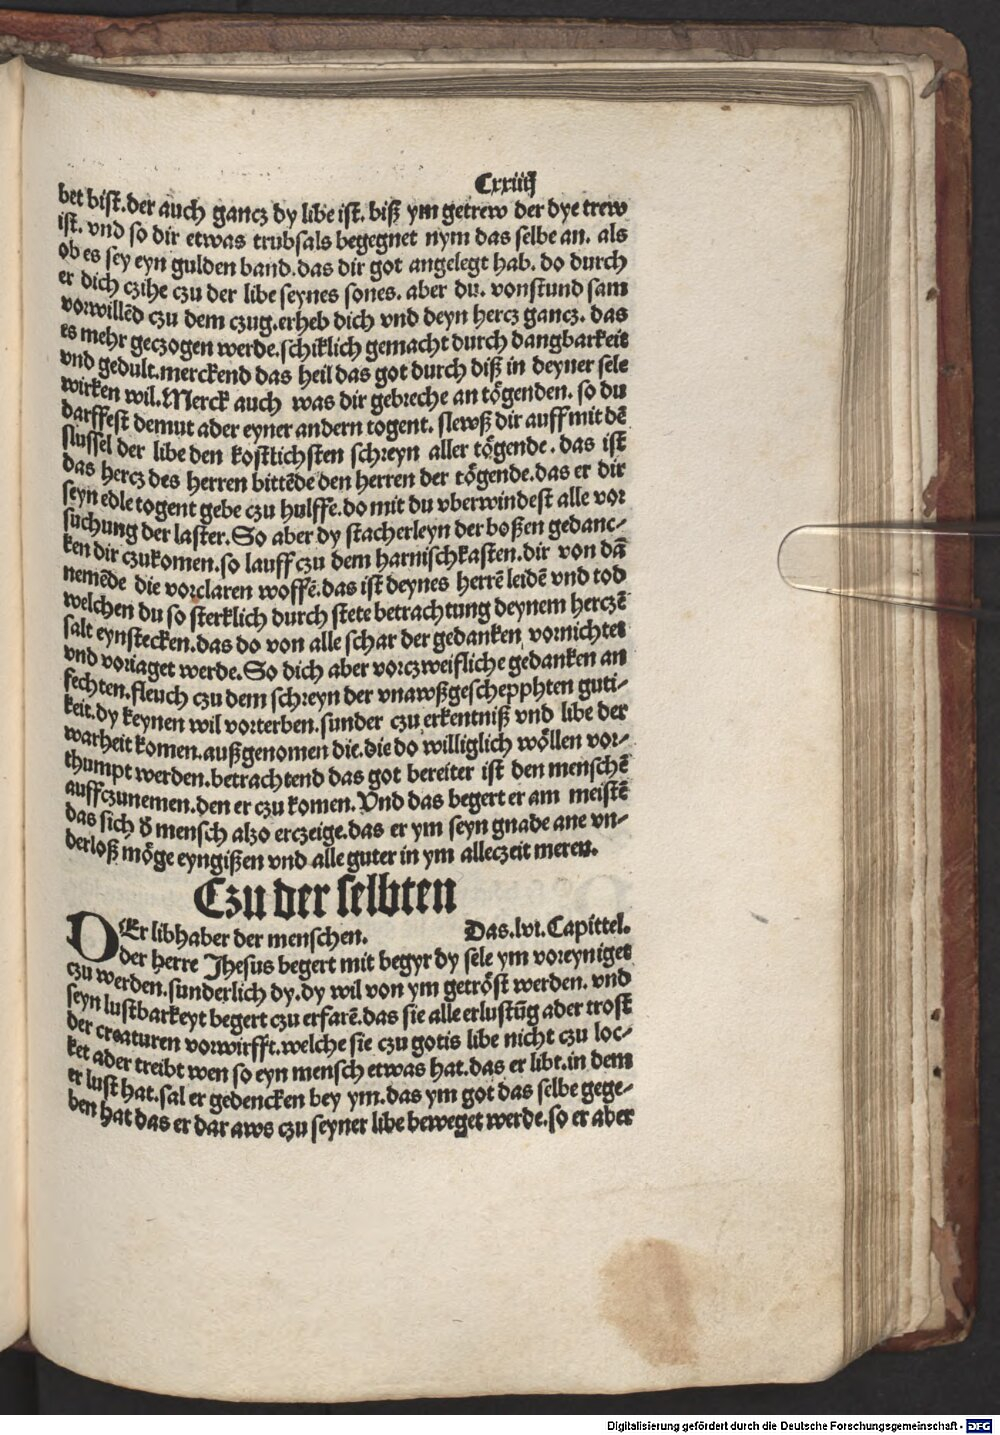 Cxxiiij
bet bist. der auch gancz dy libe ist. biß ym getrew der dye trew
ist. vnd so dir etwas trubsals begegnet nym das selbe an. als
ob es sey eyn gulden band. das dir got angelegt hab. do durch
er dich czihe czu der libe seynes sones. aber du. vonstund sam
vorwillēd czu dem czug. erheb dich vnd deyn hercz gancz. das
es mehr geczogen werde. schiklich gemacht durch dangbarkeit
vnd gedult. merckend das heil das got durch diß in deyner sele
wirken wil. Merck auch was dir gebreche an tögenden. so du
darffest demut ader eyner andern togent. slewß dir auff mit dē
slussel der libe den kostlichsten schreyn aller tögende. das ist
das hercz des herren bittēde den herren der tögende. das er dir
seyn edle togent gebe czu hulffe. do mit du vberwindest alle vor
suchung der laster. So aber dy stacherleyn der boßen gedanc⸗
ken dir czukomen. so lauff czu dem harnischkasten. dir von dā
nemēde die vorclaren woffē. das ist deynes herrē leidē vnd tod
welchen du so sterklich durch stete betrachtung deynem herczē
salt eynstecken. das do von alle schar der gedanken vornichtet
vnd voriaget werde. So dich aber vorczweifliche gedanken an
fechten. fleuch czu dem schreyn der vnawßgeschepphten guti⸗
keit. dy keynen wil vorterben. sunder czu erkentniß vnd libe der
warheit komen. außgenomen die. die do williglich wöllen vor⸗
thumpt werden. betrachtend das got bereiter ist den menschē
auffczunemen. den er czu komen. Vnd das begert er am meistē
das sich d̄ mensch alzo erczeige. das er ym seyn gnade ane vn⸗
derloß möge eyngißen vnd alle guter in ym alleczeit meren.
Czu der selbten
DEr libhaber der menschen. Das. lvi. Capittel.
der herre Jhesus begert mit begyr dy sele ym voreyniget
czu werden. sunderlich dy. dy wil von ym getröst werden. vnd
seyn lustbarkeyt begert czu erfarē. das sie alle erlustūg ader trost
der creaturen vorwirfft. welche sie czu gotis libe nicht czu loc⸗
ket ader treibt wen so eyn mensch etwas hat. das er libt. in dem
er lust hat. sal er gedencken bey ym. das ym got das selbe gege⸗
ben hat das er dar aws czu seyner libe beweget werde. so er aber
Digitalisierung gefördert durch die Deutsche Forschungsgemeinschaft - DFG